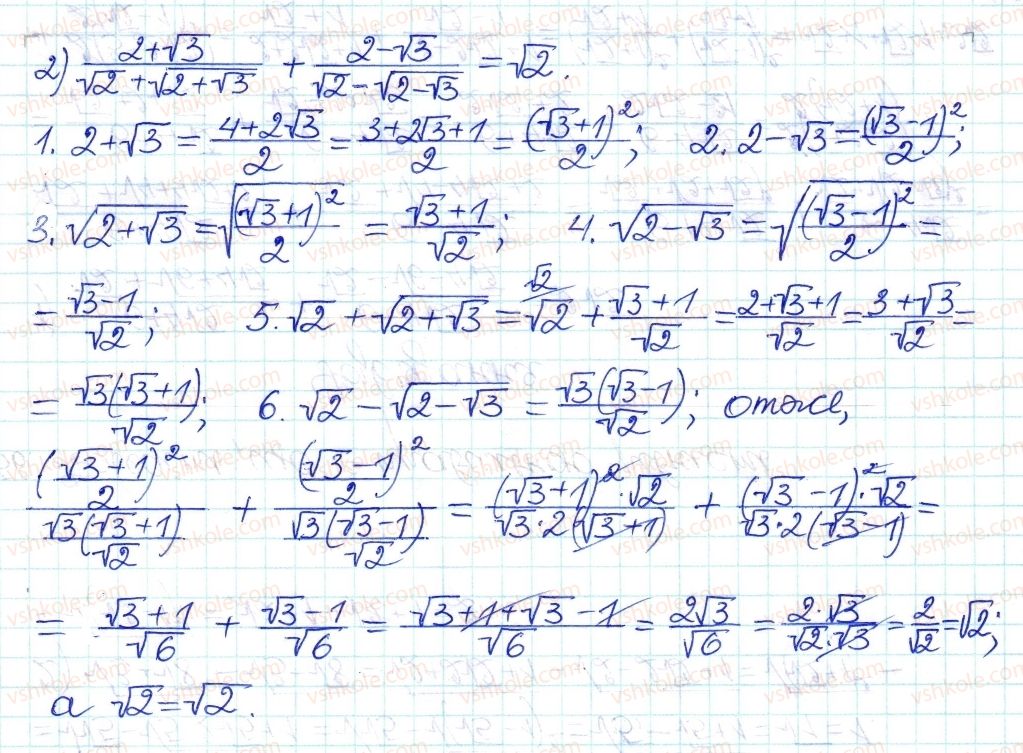 2) (2+√3)/(√2+√(2+√3)) + (2-√3)/(√2-√(2-√3)) = √2.
1. 2+√3 = (4+2√3)/2 = (3+2√3+1)/2 = (√3+1)²/2; 2. 2-√3 = (√3-1)²/2;
3. √(2+√3) = √((√3+1)²/2) = (√3+1)/√2; 4. √(2-√3) = √((√3-1)²/2) =
= (√3-1)/√2; 5. √2+√(2+√3) = √2/ √2 + (√3+1)/√2 = (2+√3+1)/√2 = (3+√3)/√2 =
= √3(√3+1)/√2; 6. √2-√(2-√3) = √3(√3-1)/√2; отже,
((√3+1)²/2)/(√3(√3+1)/√2) + ((√3-1)²/2)/(√3(√3-1)/√2) = ((√3+1)²·√2)/(√3·2(√3+1)) + ((√3-1)²·√2)/(√3·2(√3-1)) =
= (√3+1)/√6 + (√3-1)/√6 = (√3+1+√3-1)/√6 = 2√3/√6 = (2·√3)/(√2·√3) = 2/√2 = √2;
а √2=√2.